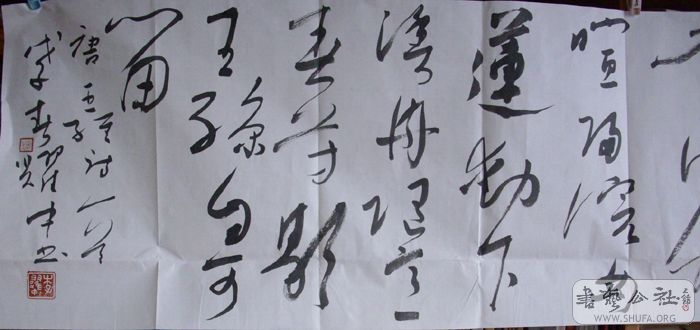 喧归浣女
莲动下
渔舟随意
春芳歇
王孙自可
留
唐王维诗一首
戊子春
書藝公社
WWW.SHUFA.ORG